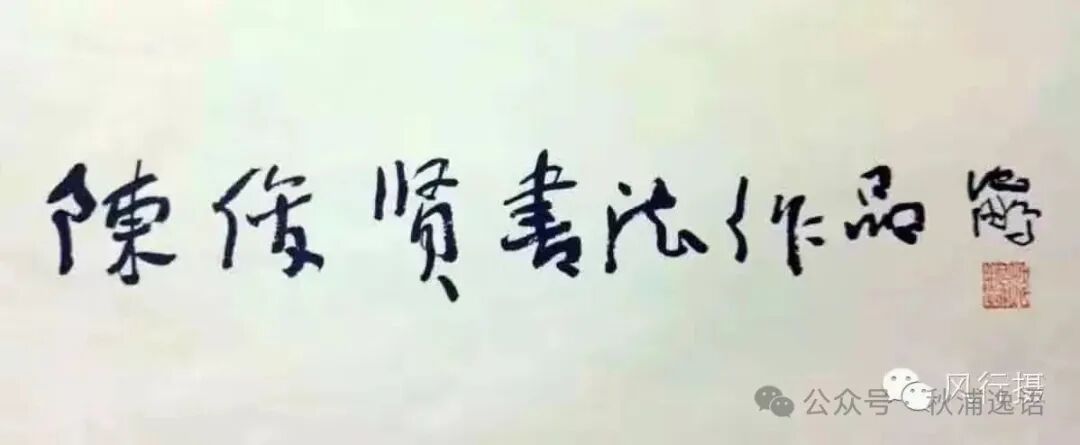 陳俊贤書法作品
公众号·秋浦逸语
风行摄